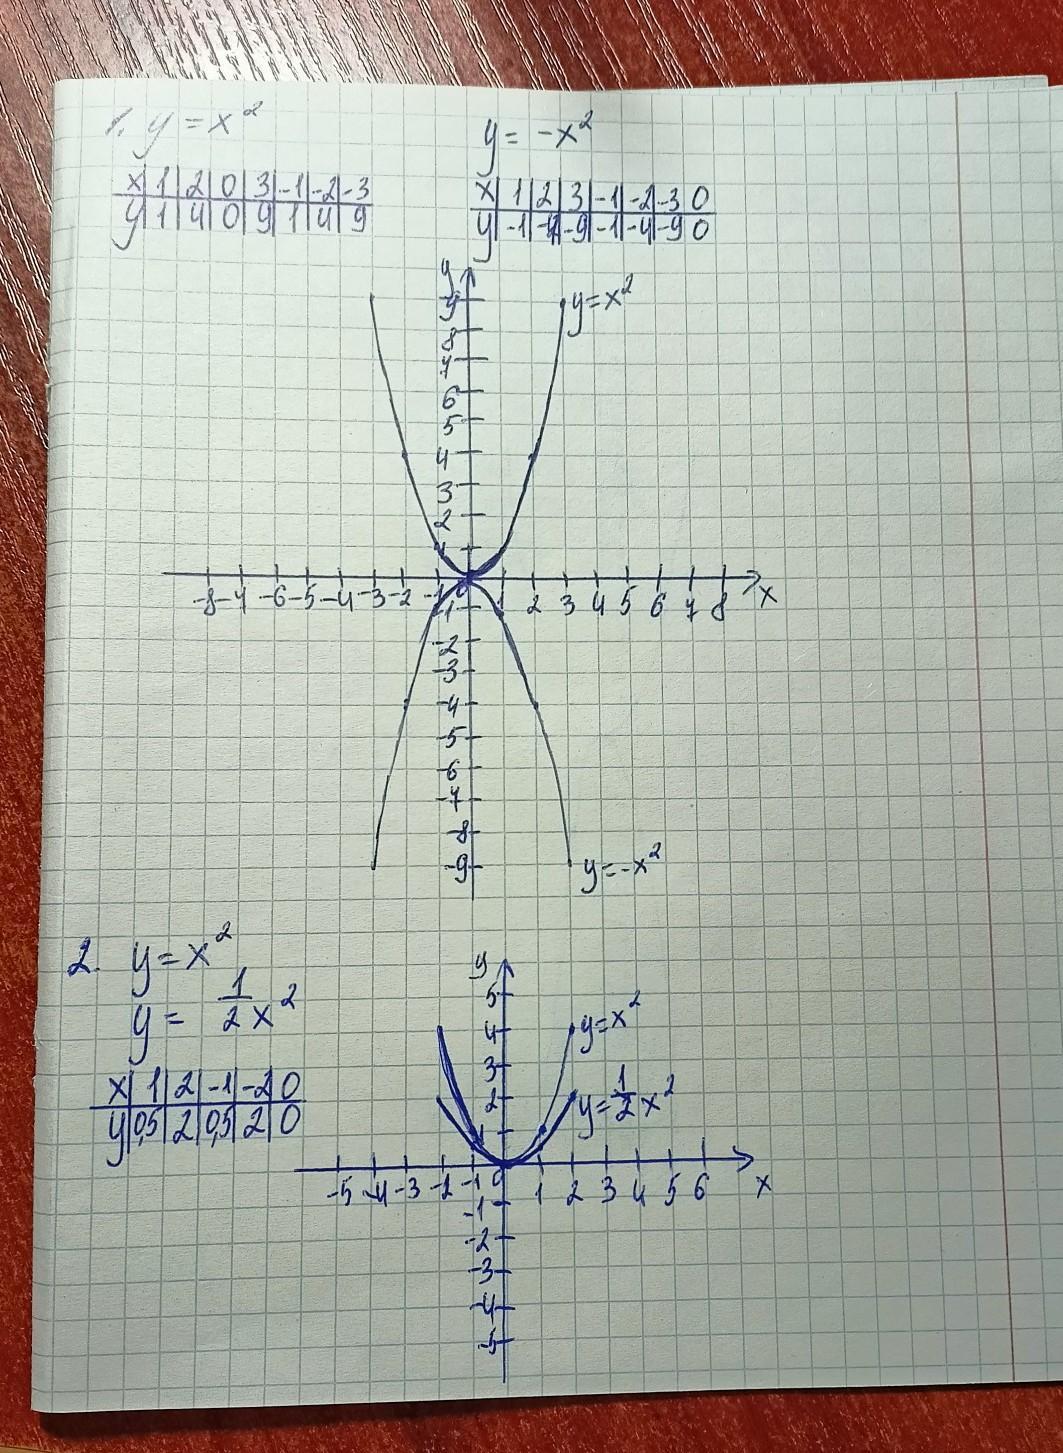 1. y = x²
y = -x²
x 1 2 0 3 -1 -2 -3
y 1 4 0 9 1 4 9
x 1 2 3 -1 -2 -3 0
y -1 -4 -9 -1 -4 -9 0
y
9
y=x²
8
7
6
5
4
3
2
1
-8 -7 -6 -5 -4 -3 -2 -1 0 1 2 3 4 5 6 7 8 x
-1
-2
-3
-4
-5
-6
-7
-8
-9
y=-x²
2. y = x²
y = 1/2 x²
x 1 2 -1 -2 0
y 0,5 2 0,5 2 0
y
5
4 y=x²
3
2 y=1/2 x²
-5 -4 -3 -2 -1 0 1 2 3 4 5 6 x
-1
-2
-3
-4
-5